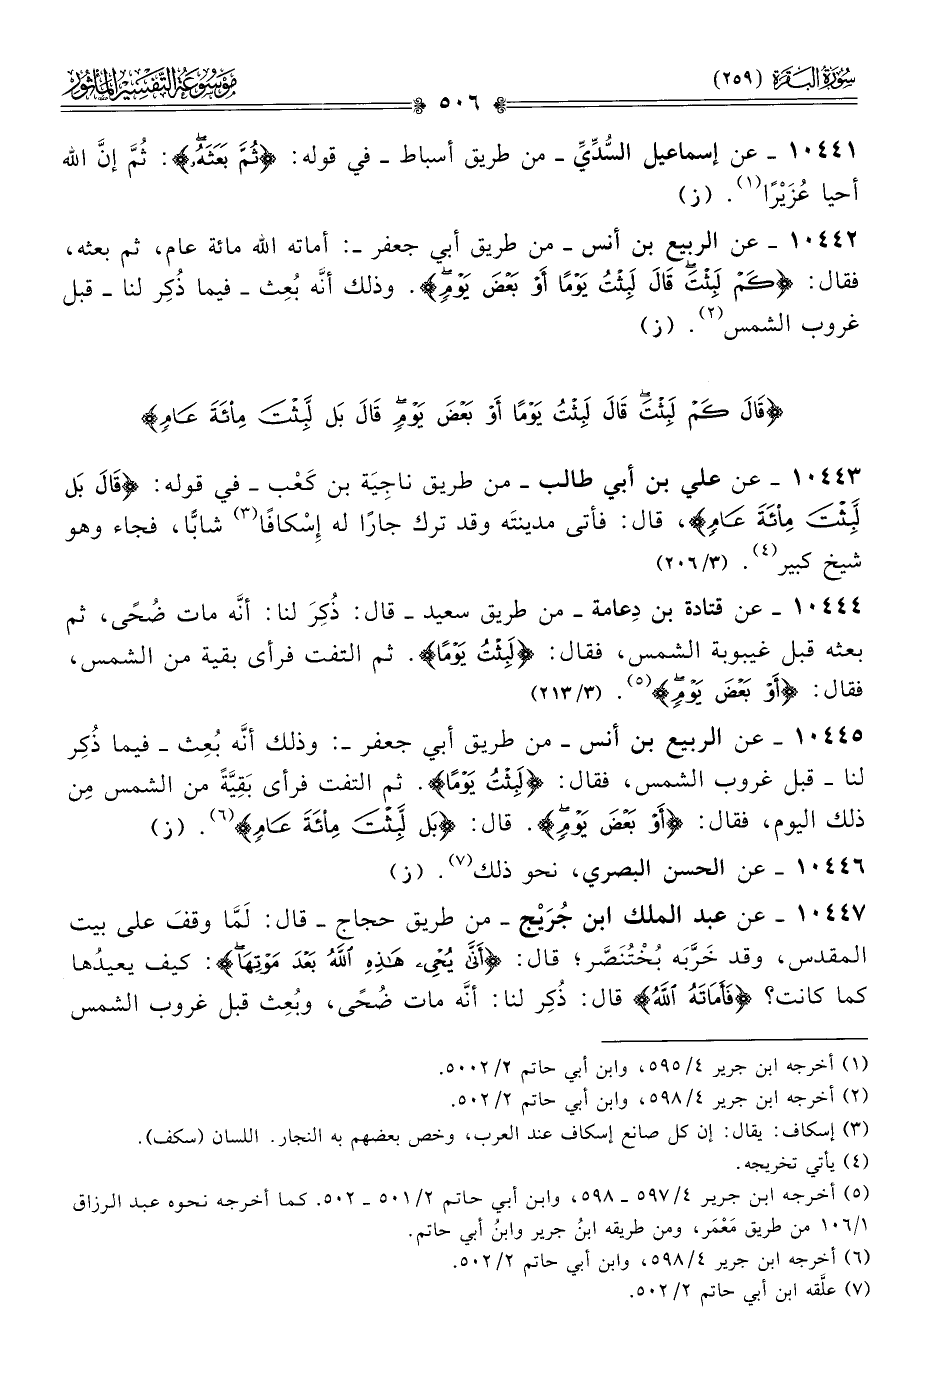 سُورَةُ البَقَرَة (٢٥٩)
٥٠٦
مَوْسُوعَةُ التَّفْسِيرِ المَأْثُورِ
١٠٤٤١ ـ عن إسماعيل السُّدِّيِّ ـ من طريق أسباط ـ في قوله: ﴿ثُمَّ بَعَثَهُۥۖ﴾: ثُمَّ إنَّ الله
أحيا عُزَيْرًا(١). (ز)
١٠٤٤٢ ـ عن الربيع بن أنس ـ من طريق أبي جعفر ـ: أماته الله مائة عام، ثم بعثه،
فقال: ﴿كَمْ لَبِثْتَۖ قَالَ لَبِثْتُ يَوْمًا أَوْ بَعْضَ يَوْمٍۖ﴾. وذلك أنَّه بُعِث ـ فيما ذُكِر لنا ـ قبل
غروب الشمس(٢). (ز)
﴿قَالَ كَمْ لَبِثْتَۖ قَالَ لَبِثْتُ يَوْمًا أَوْ بَعْضَ يَوْمٍۖ قَالَ بَل لَّبِثْتَ مِا۟ئَةَ عَامٍ﴾
١٠٤٤٣ ـ عن علي بن أبي طالب ـ من طريق ناجِيَة بن كَعْب ـ في قوله: ﴿قَالَ بَل
لَّبِثْتَ مِا۟ئَةَ عَامٍ﴾، قال: فأتى مدينته وقد ترك جارًا له إِسْكافًا(٣) شابًّا، فجاء وهو
شيخ كبير(٤). (٢٠٦/٣)
١٠٤٤٤ ـ عن قتادة بن دِعامة ـ من طريق سعيد ـ قال: ذُكِرَ لنا: أنَّه مات ضُحًى، ثم
بعثه قبل غيبوبة الشمس، فقال: ﴿لَبِثْتُ يَوْمًا﴾. ثم التفت فرأى بقية من الشمس،
فقال: ﴿أَوْ بَعْضَ يَوْمٍۖ﴾(٥). (٢١٣/٣)
١٠٤٤٥ ـ عن الربيع بن أنس ـ من طريق أبي جعفر ـ: وذلك أنَّه بُعِث ـ فيما ذُكِر
لنا ـ قبل غروب الشمس، فقال: ﴿لَبِثْتُ يَوْمًا﴾. ثم التفت فرأى بَقِيَّةً من الشمس مِن
ذلك اليوم، فقال: ﴿أَوْ بَعْضَ يَوْمٍۖ﴾. قال: ﴿بَل لَّبِثْتَ مِا۟ئَةَ عَامٍ﴾(٦). (ز)
١٠٤٤٦ ـ عن الحسن البصري، نحو ذلك(٧). (ز)
١٠٤٤٧ ـ عن عبد الملك ابن جُرَيْج ـ من طريق حجاج ـ قال: لَمَّا وقفَ على بيت
المقدس، وقد خَرَّبَه بُخْتُنَصَّر؛ قال: ﴿أَنَّىٰ يُحْىِۦ هَٰذِهِ ٱللَّهُ بَعْدَ مَوْتِهَاۖ﴾: كيف يعيدُها
كما كانت؟ ﴿فَأَمَاتَهُ ٱللَّهُ﴾ قال: ذُكِر لنا: أنَّه مات ضُحًى، وبُعِث قبل غروب الشمس
(١) أخرجه ابن جرير ٤/ ٥٩٥، وابن أبي حاتم ٢/ ٥٠٠٢.
(٢) أخرجه ابن جرير ٤/ ٥٩٨، وابن أبي حاتم ٢/ ٥٠٢.
(٣) إسكاف: يقال: إن كل صانع إسكاف عند العرب، وخص بعضهم به النجار. اللسان (سكف).
(٤) يأتي تخريجه.
(٥) أخرجه ابن جرير ٤/ ٥٩٧ ـ ٥٩٨، وابن أبي حاتم ٢/ ٥٠١ ـ ٥٠٢. كما أخرجه نحوه عبد الرزاق
١٠٦/١ من طريق مَعْمَر، ومن طريقه ابنُ جرير وابنُ أبي حاتم.
(٦) أخرجه ابن جرير ٤/ ٥٩٨، وابن أبي حاتم ٢/ ٥٠٢.
(٧) علَّقه ابن أبي حاتم ٢/ ٥٠٢.